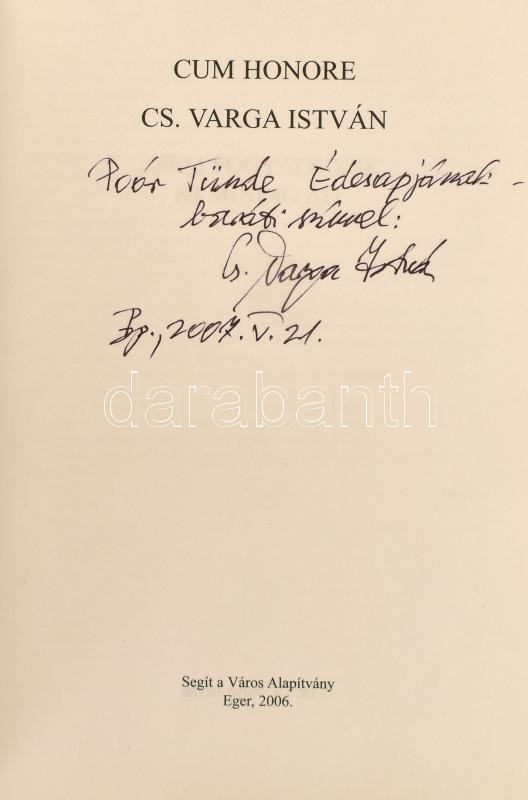 CUM HONORE
CS. VARGA ISTVÁN
Poór Tünde Édesapjának -
baráti szívvel:
Cs. Varga István
Bp., 2007. V. 21.
darabanth
Segít a Város Alapítvány
Eger, 2006.